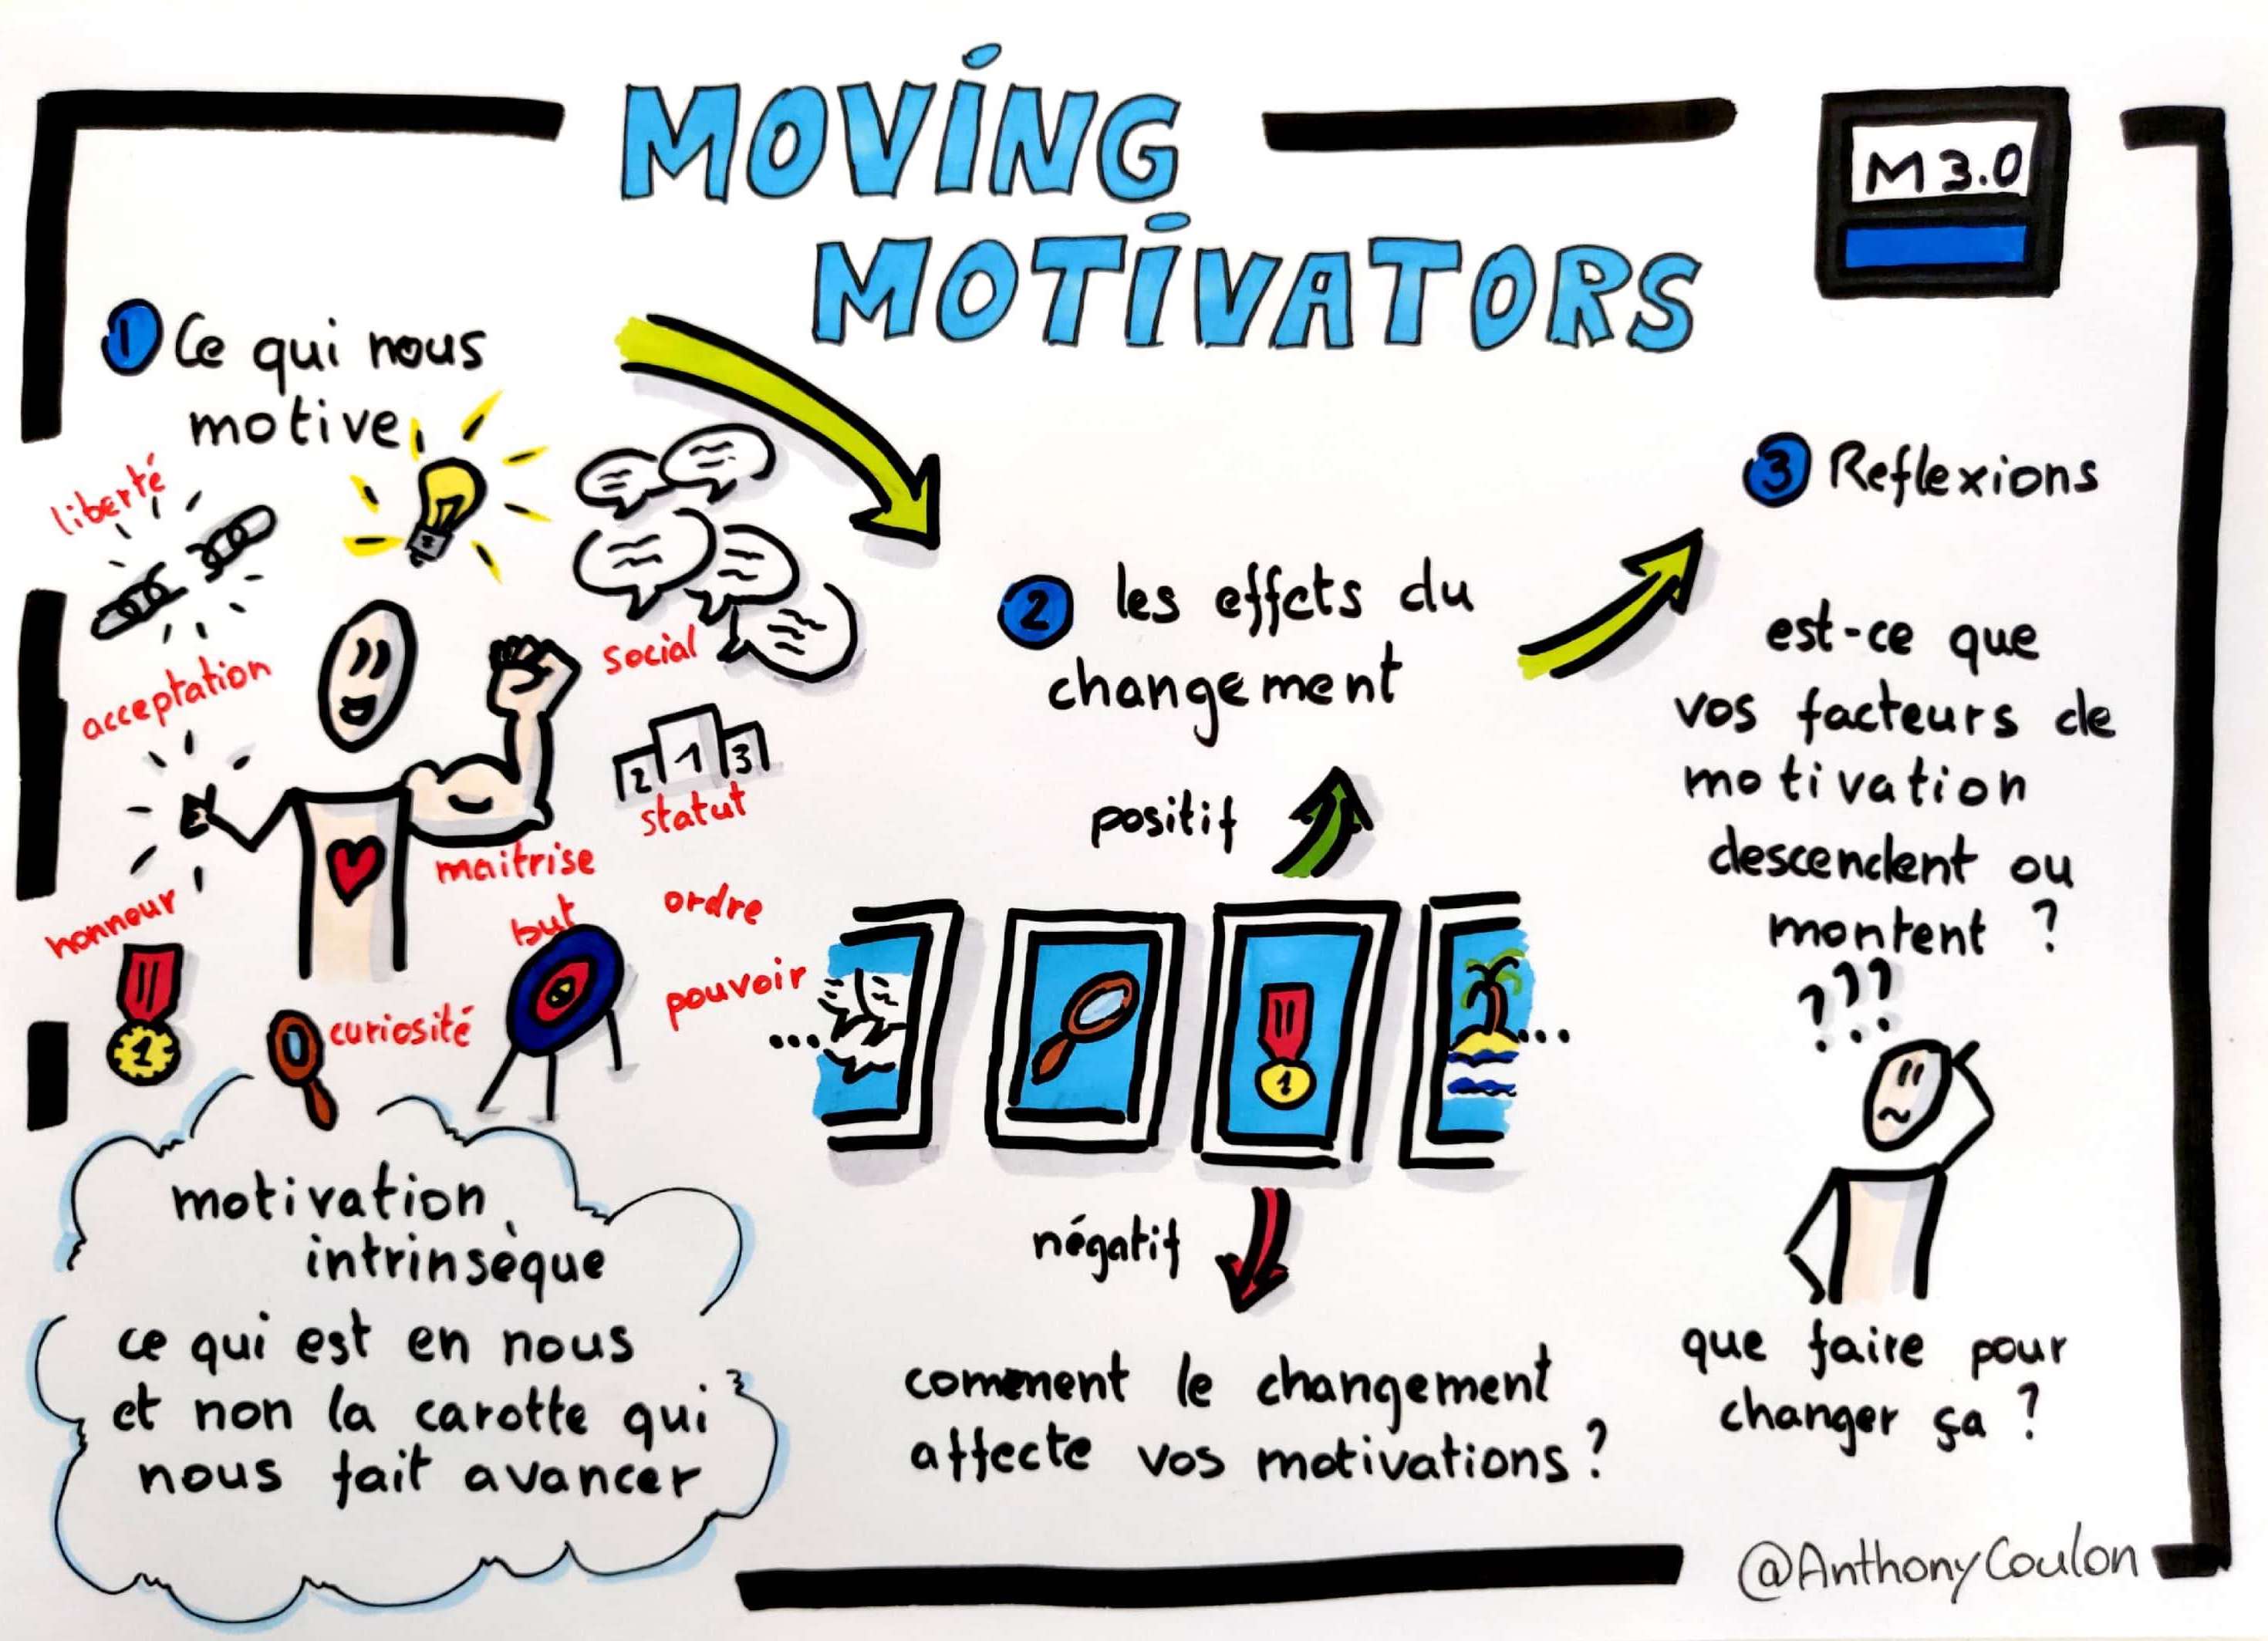 MOVING
MOTIVATORS
M 3.0
1 Ce qui nous
motive
liberté
acceptation
social
2 1 3
statut
maitrise
honneur
but
ordre
pouvoir
1
curiosité
motivation
intrinsèque
ce qui est en nous
et non la carotte qui
nous fait avancer
2 les effets du
changement
positif
...
1
...
négatif
comment le changement
affecte vos motivations ?
3 Reflexions
est-ce que
vos facteurs de
motivation
descendent ou
montent ?
???
que faire pour
changer ça ?
@AnthonyCoulon